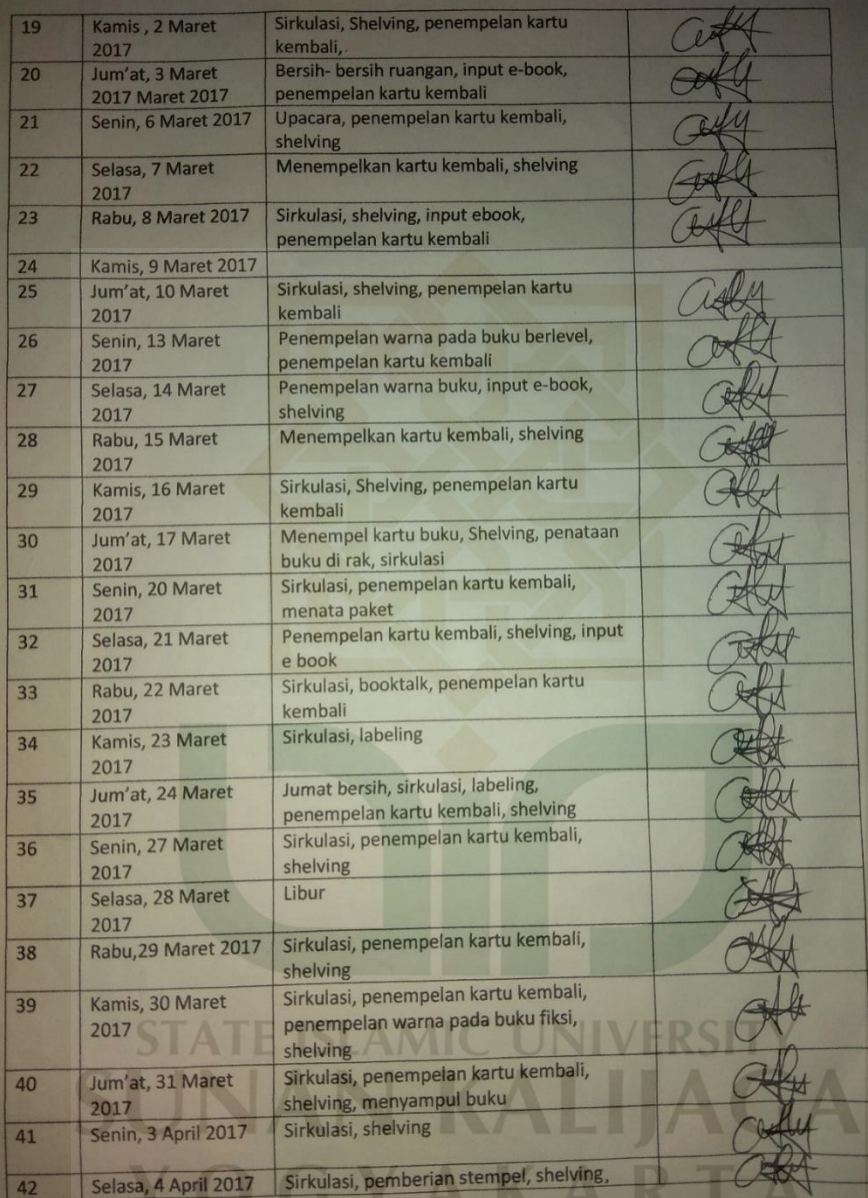 19 Kamis , 2 Maret Sirkulasi, Shelving, penempelan kartu
2017 kembali,.
20 Jum'at, 3 Maret Bersih- bersih ruangan, input e-book,
2017 Maret 2017 penempelan kartu kembali
21 Senin, 6 Maret 2017 Upacara, penempelan kartu kembali,
shelving
22 Selasa, 7 Maret Menempelkan kartu kembali, shelving
2017
23 Rabu, 8 Maret 2017 Sirkulasi, shelving, input ebook,
penempelan kartu kembali
24 Kamis, 9 Maret 2017
25 Jum'at, 10 Maret Sirkulasi, shelving, penempelan kartu
2017 kembali
26 Senin, 13 Maret Penempelan warna pada buku berlevel,
2017 penempelan kartu kembali
27 Selasa, 14 Maret Penempelan warna buku, input e-book,
2017 shelving
28 Rabu, 15 Maret Menempelkan kartu kembali, shelving
2017
29 Kamis, 16 Maret Sirkulasi, Shelving, penempelan kartu
2017 kembali
30 Jum'at, 17 Maret Menempel kartu buku, Shelving, penataan
2017 buku di rak, sirkulasi
31 Senin, 20 Maret Sirkulasi, penempelan kartu kembali,
2017 menata paket
32 Selasa, 21 Maret Penempelan kartu kembali, shelving, input
2017 e book
33 Rabu, 22 Maret Sirkulasi, booktalk, penempelan kartu
2017 kembali
34 Kamis, 23 Maret Sirkulasi, labeling
2017
35 Jum'at, 24 Maret Jumat bersih, sirkulasi, labeling,
2017 penempelan kartu kembali, shelving
36 Senin, 27 Maret Sirkulasi, penempelan kartu kembali,
2017 shelving
37 Selasa, 28 Maret Libur
2017
38 Rabu,29 Maret 2017 Sirkulasi, penempelan kartu kembali,
shelving
39 Kamis, 30 Maret Sirkulasi, penempelan kartu kembali,
2017 penempelan warna pada buku fiksi,
shelving
STATE ISLAMIC UNIVERSITY
40 Jum'at, 31 Maret Sirkulasi, penempelan kartu kembali,
2017 shelving, menyampul buku
SUNAN KALIJAGA
41 Senin, 3 April 2017 Sirkulasi, shelving
42 Selasa, 4 April 2017 Sirkulasi, pemberian stempel, shelving,